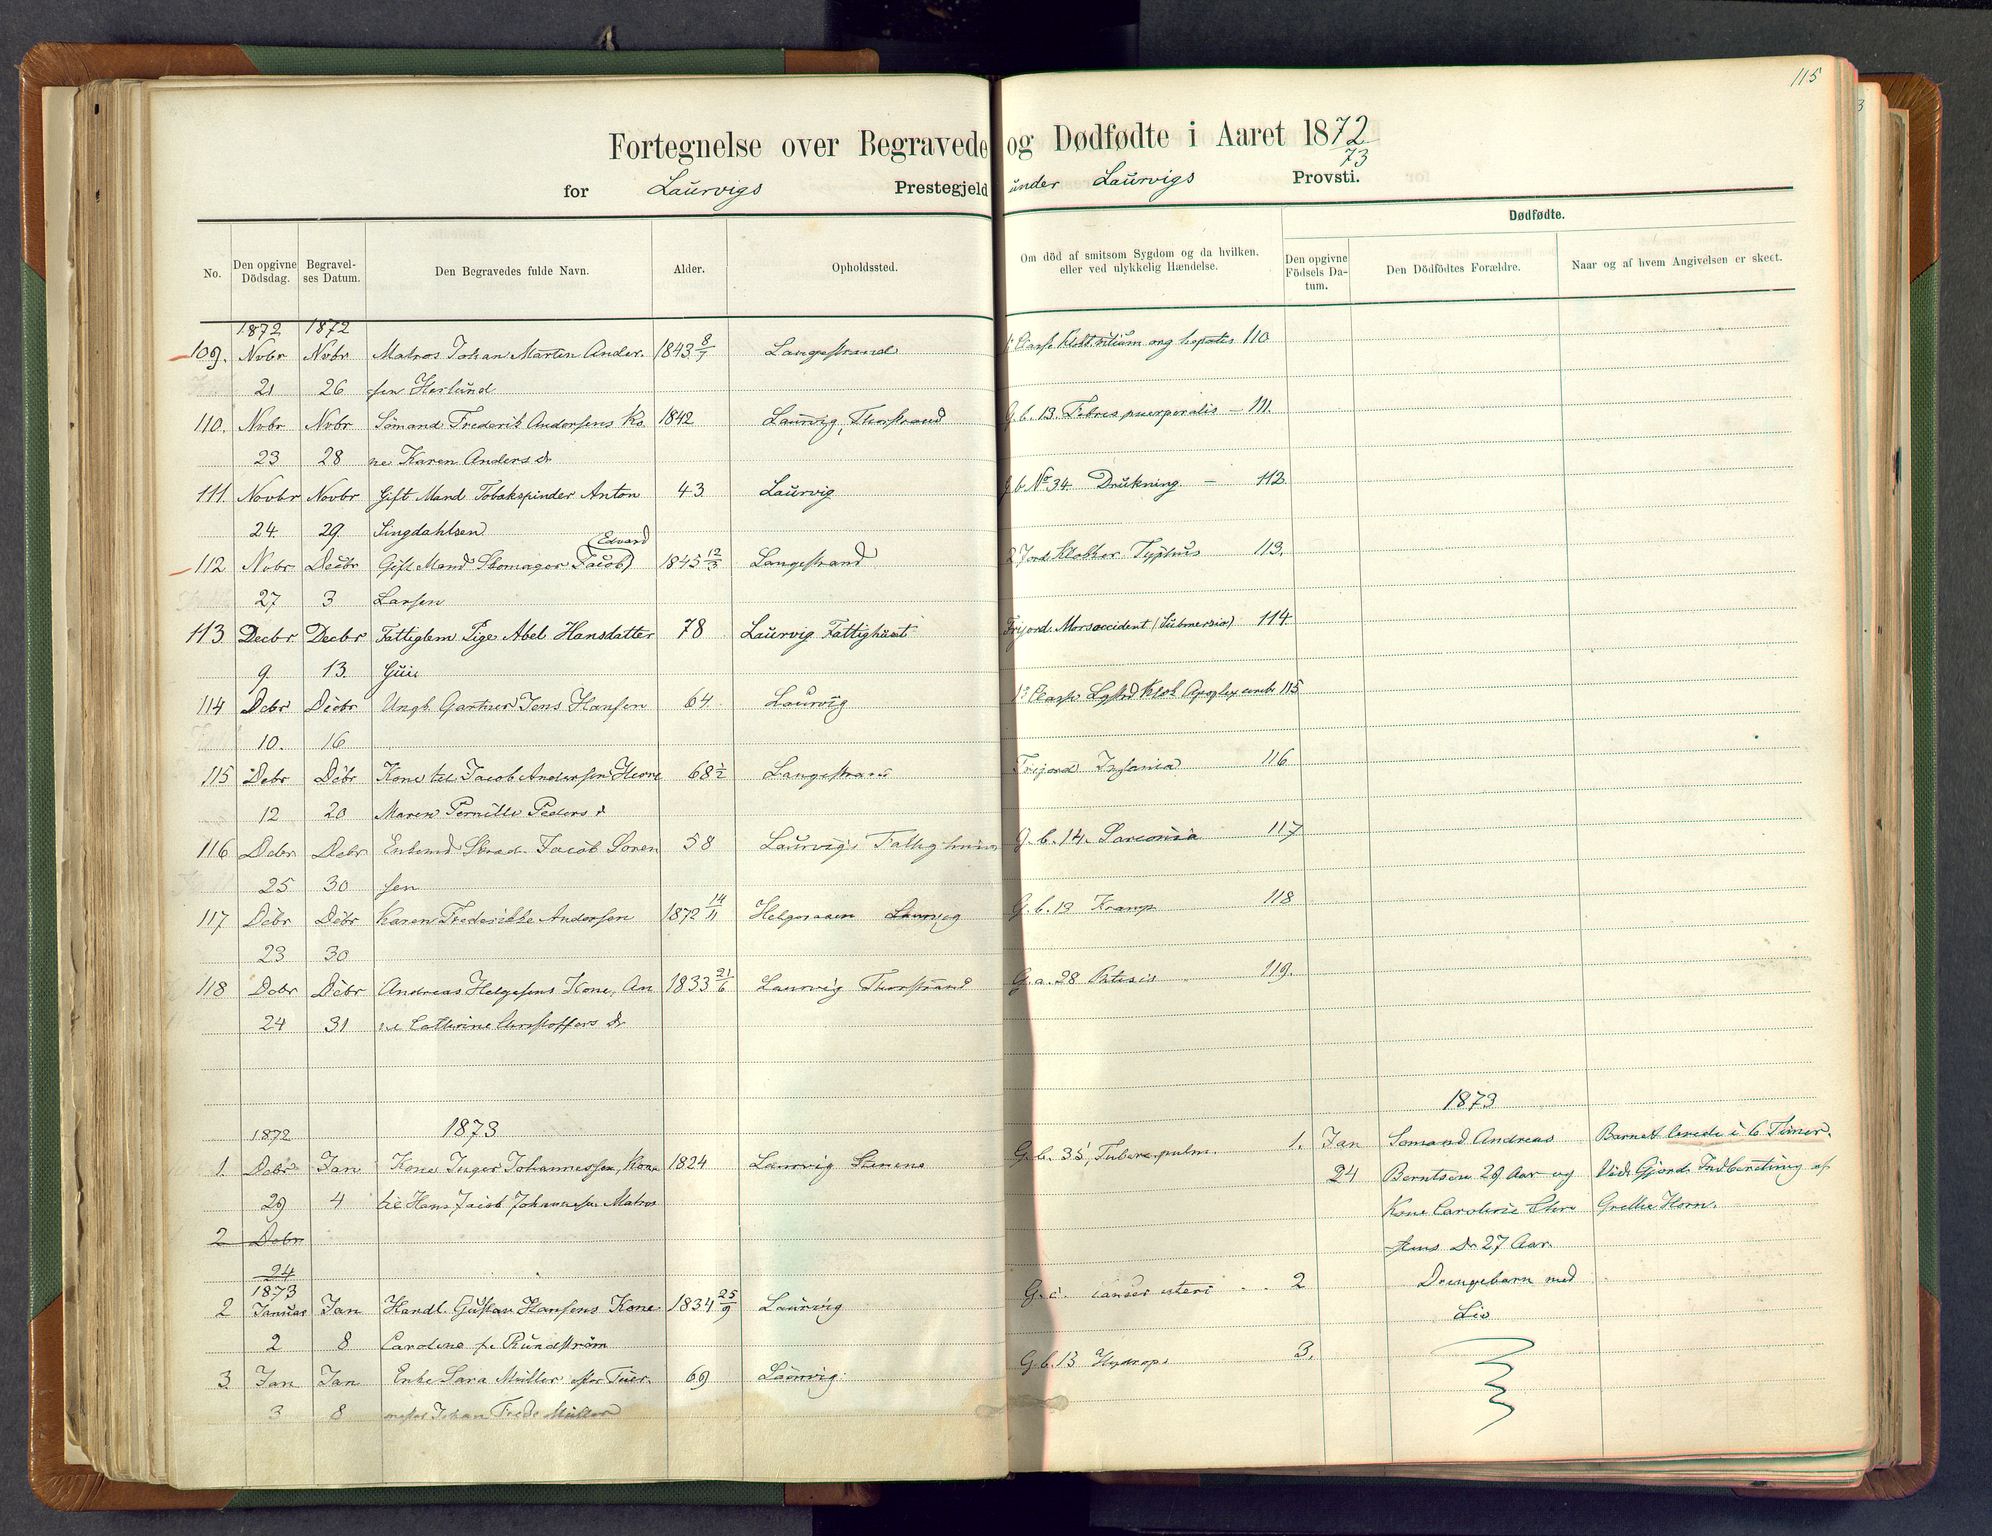 115
Fortegnelse over Begravede og Dødfødte i Aaret 1872
73
for Laurvigs Prestegjeld under Laurvigs Provsti.
Dødfødte.
No. Den opgivne Dödsdag. Begravelses Datum. Den Begravedes fulde Navn. Alder. Opholdssted. Om död af smitsom Sygdom og da hvilken. eller ved ulykkelig Hændelse. Den opgivne Födsels Datum. Den Dödfödtes Forældre. Naar og af hvem Angivelsen er skeet.
1872 1872
109. Nvbr Nvbr Matros Johan Martin Ander- 1843 8/7 Langestrand 110
21 26 sen Herlund
110. Nvbr Nvbr Sömand Frederik Andersens Ko 1842 Laurvig, Thorstrand G. b. 13. Febris puerperalis – 111.
23 28 ne Karen Anders dr
111 Novbr Novbr Gift Mand Tobakspinder Anton 43 Laurvig G b. No 34 Drukning – 112
24. 29. Singdahlsen
(Edvard)
112 Nvbr Decbr Gift Mand Skomager Jacob 1845 12/3 Langestrand 2 Jord Klokker Typhus 113.
27 3 Larsen
113 Decbr. Decbr Fattiglem Pige Abel Hansdatter 78 Laurvig Fattighuset Frijord. Morsaccident (Submersio) 114
9. 13.
114 Dcbr Decbr Ungk. Gartner Jens Hansen 64 Laurvig 115
10. 16
115 Debr Debr Kone til Jacob Andersen 68 1/2 Langestrand Frijord Insania 116
12 20 Maren Pernille Peders d
116 Dcbr Dcbr Jacob Soren 58 Laurvigs G. b. 14. Sarcoma 117
25 30 sen
117 Debr Debr Karen Frederikke Andersen 1872 14/11 Helgeroaen Laurvig G. b. 13 Kramp 118
23 30
118 Dcbr Debr Andreas Helgesens Kone, An 1833 21/6 Laurvig Thorstrand G. a. 28 119.
24 31 ne Cathrine Christoffers Dr
1873
1872 1873
1. Debr Jan Kone Inger Johannessen, Kone 1824 Laurvig Stenene G. b. 35, Tuberc. pulm. 1. Jan Sömand Andreas Barnet levede i 6 Timer.
29 4 til Hans Jacob Johannesen Matros 24 Berntsen 29 Aar og Död. Gjord. Indberetning af
Kone Caroline Grethe Horn.
2 Debr Dr 27 Aar
24
1873 Drengebarn med
2 Januar Jan Handl. Gustav Hansens Kone 1834 25/9 Laurvig G. c. cancer uteri 2
Liv
2 8 Caroline f. Rundström
3. Jan Jan Enke Sara Müller 69 Laurvig. G. b. 13 Hydrops 3.
3 8 Johan Fredr Müller